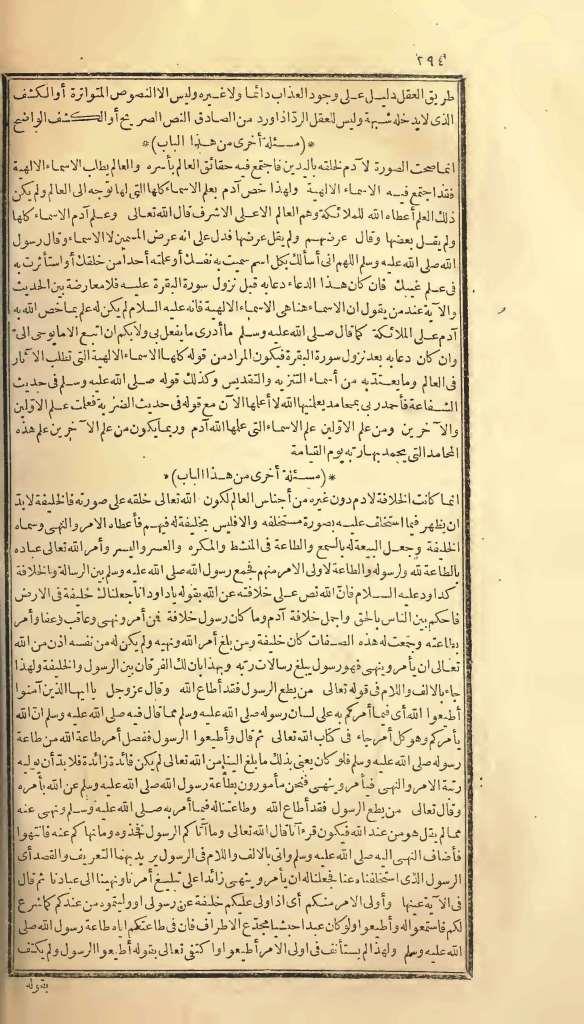 ٢٩٤
طريق العقل دليل على وجود العذاب دائما ولا غيره وليس الا النصوص المتواترة أو الكشف
الذى لا يدخله شبهة وليس للعقل الرد اذا ورد من الصادق النص الصريح أو الكشف الواضح
*(مسئلة أخرى من هذا الباب)*
انما صحت الصورة لآدم لخلقه باليدين فاجتمع فيه حقائق العالم بأسره والعالم يطلب الاسماء الالهية
فقد اجتمع فيه الاسماء الالهية ولهذا خص آدم بعلم الاسماء كلها التى لها توجه الى العالم ولم يكن
ذلك العلم أعطاه الله للملائكة وهم العالم الاعلى الاشرف قال الله تعالى وعلم آدم الاسماء كلها
ولم يقل بعضها وقال عرضهم ولم يقل عرضها فدل على انه عرض المسمين لا الاسماء وقال رسول
الله صلى الله عليه وسلم اللهم انى أسألك بكل اسم سميت به نفسك أو علمته أحدا من خلقك أو استأثرت به
فى علم غيبك فان كان هذا الدعاء دعا به قبل نزول سورة البقرة عليه فلا معارضة بين الحديث
والآية عند من يقول ان الاسماء هنا هى الاسماء الالهية فانه عليه السلام لم يكن له علم بما خص الله به
آدم على الملائكة كما قال صلى الله عليه وسلم ما أدرى ما يفعل بى ولا بكم ان أتبع الا ما يوحى الىّ
وان كان دعا به بعد نزول سورة البقرة فيكون المراد من قوله كلها الاسماء الالهية التى تطلب الآثار
فى العالم وما تعبد به من أسماء التنزيه والتقديس وكذلك قوله صلى الله عليه وسلم فى حديث
الشفاعة فأحمد ربى بمحامد يعلمنيها الله لا أعلمها الآن مع قوله فى حديث الضربة فعلمت علم الاولين
والآخرين ومن علم الاولين علم الاسماء التى علمها الله آدم وربما يكون من علم الآخرين علم هذه
المحامد التى يحمد بها ربه يوم القيامة
*(مسئلة أخرى من هذا الباب)*
انما كانت الخلافة لآدم دون غيره من أجناس العالم لكون الله تعالى خلقه على صورته فالخليفة لابدّ
ان يظهر فيما استخلف عليه بصورة مستخلفه والا فليس بخليفة له فيهم فأعطاه الامر والنهى وسماه
الخليفة وجعل البيعة له بالسمع والطاعة فى المنشط والمكره والعسر واليسر وأمر الله تعالى عباده
بالطاعة لله ولرسوله والطاعة لاولى الامر منهم فجمع رسول الله صلى الله عليه وسلم بين الرسالة والخلافة
كداود عليه السلام فانّ الله نص على خلافته عن الله بقوله يا داود انا جعلناك خليفة فى الارض
فاحكم بين الناس بالحق وأجمل خلافة آدم وما كان رسول خلافة فمن أمر ونهى وعاقب وعفا وأمر
بطاعته وجمعت له هذه الصفات كان خليفة ومن بلغ أمر الله ونهيه ولم يكن له من نفسه اذن من الله
تعالى ان يأمر وينهى فهو رسول يبلغ رسالات ربه وبهذا بان لك الفرقان بين الرسول والخليفة ولهذا
جاء بالالف واللام فى قوله تعالى من يطع الرسول فقد أطاع الله وقال عز وجل يا أيها الذين آمنوا
أطيعوا الله أى فيما أمركم به على لسان رسوله صلى الله عليه وسلم مما قال فيه صلى الله عليه وسلم انّ الله
يأمركم وهو كل أمر جاء فى كتاب الله تعالى ثم قال وأطيعوا الرسول ففصل أمر طاعة الله من طاعة
رسوله صلى الله عليه وسلم فلو كان يعنى بذلك ما بلغ الينا من الله تعالى لم يكن فائدة زائدة فلابدّ أن يوليه
رتبة الامر والنهى فيأمر وينهى فنحن مأمورون بطاعة رسول الله صلى الله عليه وسلم عن الله بأمره
وقال تعالى من يطع الرسول فقد أطاع الله وطاعتنا له فيما أمر به صلى الله عليه وسلم ونهى عنه
مما لم يقل هو من عند الله فيكون قرءآنا قال الله تعالى وما آتاكم الرسول فخذوه وما نهاكم عنه فانتهوا
فأضاف النهى اليه صلى الله عليه وسلم وأتى بالالف واللام فى الرسول يريد بهما التعريف والقصد أى
الرسول الذى استخلفناه عنا فجعلنا له أن يأمر وينهى زائدا على تبليغ أمرنا ونهينا الى عبادنا ثم قال
فى الآية عينها وأولى الامر منكم أى اذا ولى عليكم خليفة عن رسولى أو وليتموه من عندكم كما شرع
لكم فاسمعوا له وأطيعوا ولو كان عبدا حبشيا مجدّع الاطراف فان فى طاعتكم اياه طاعة رسول الله صلى
الله عليه وسلم ولهذا لم يستأنف فى أولى الامر أطيعوا واكتفى تعالى بقوله أطيعوا الرسول ولم يكتف
بقوله